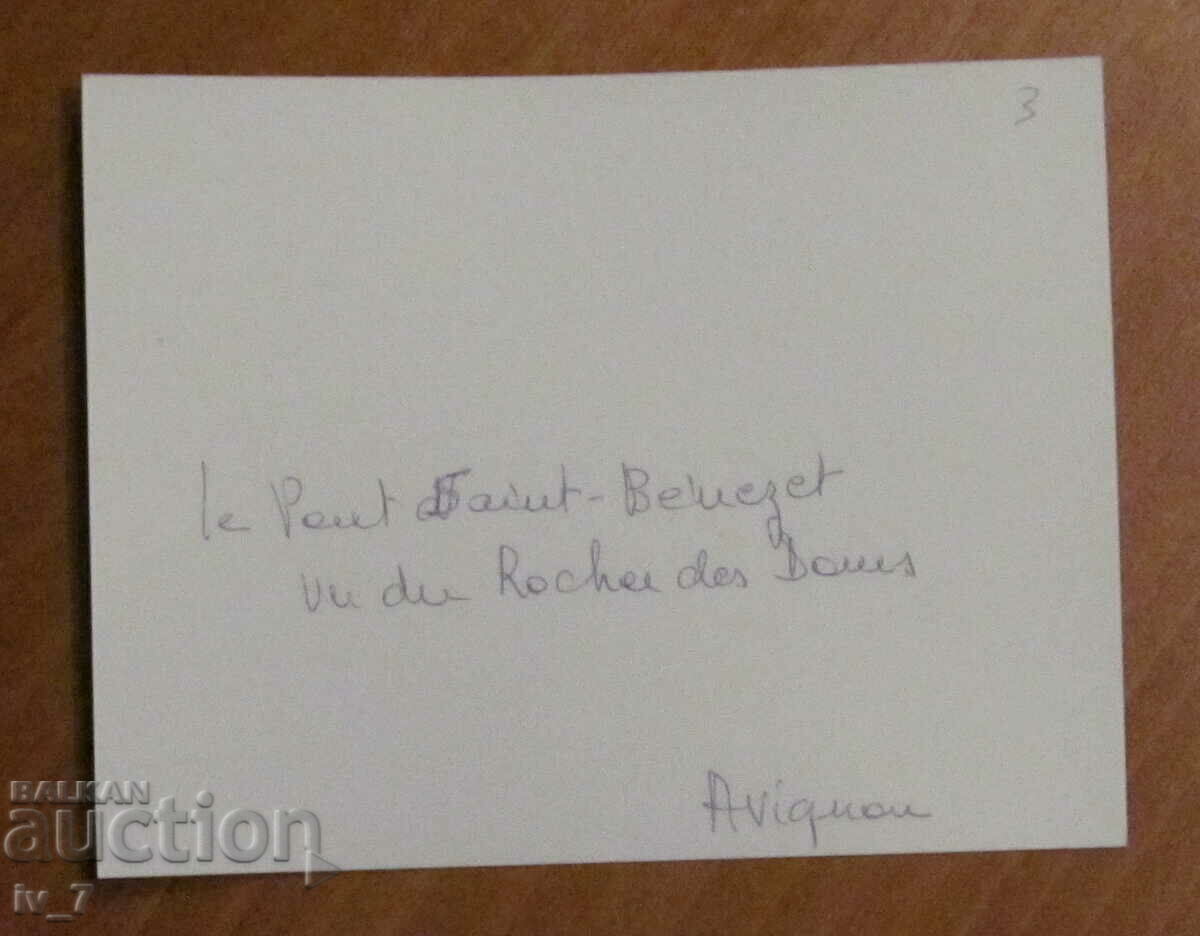 3
le Pont Saint-Bénezet
vu du Rocher des Doms
Avignon
BALKAN
auction
iv_7